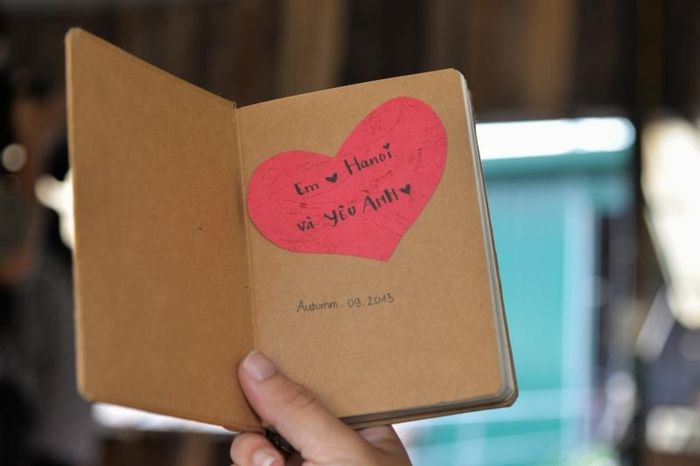 Em ♥ Hanoi
và YÊU ANH ♥
Autumn. 09. 2013